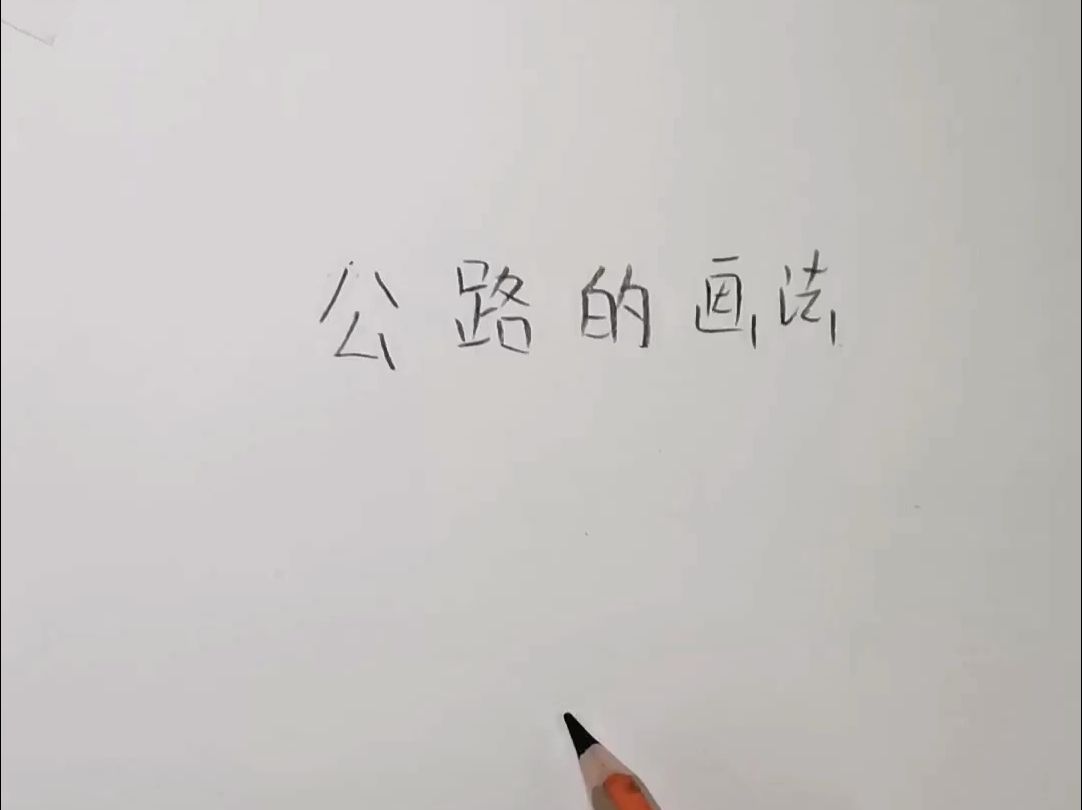 公路的画法